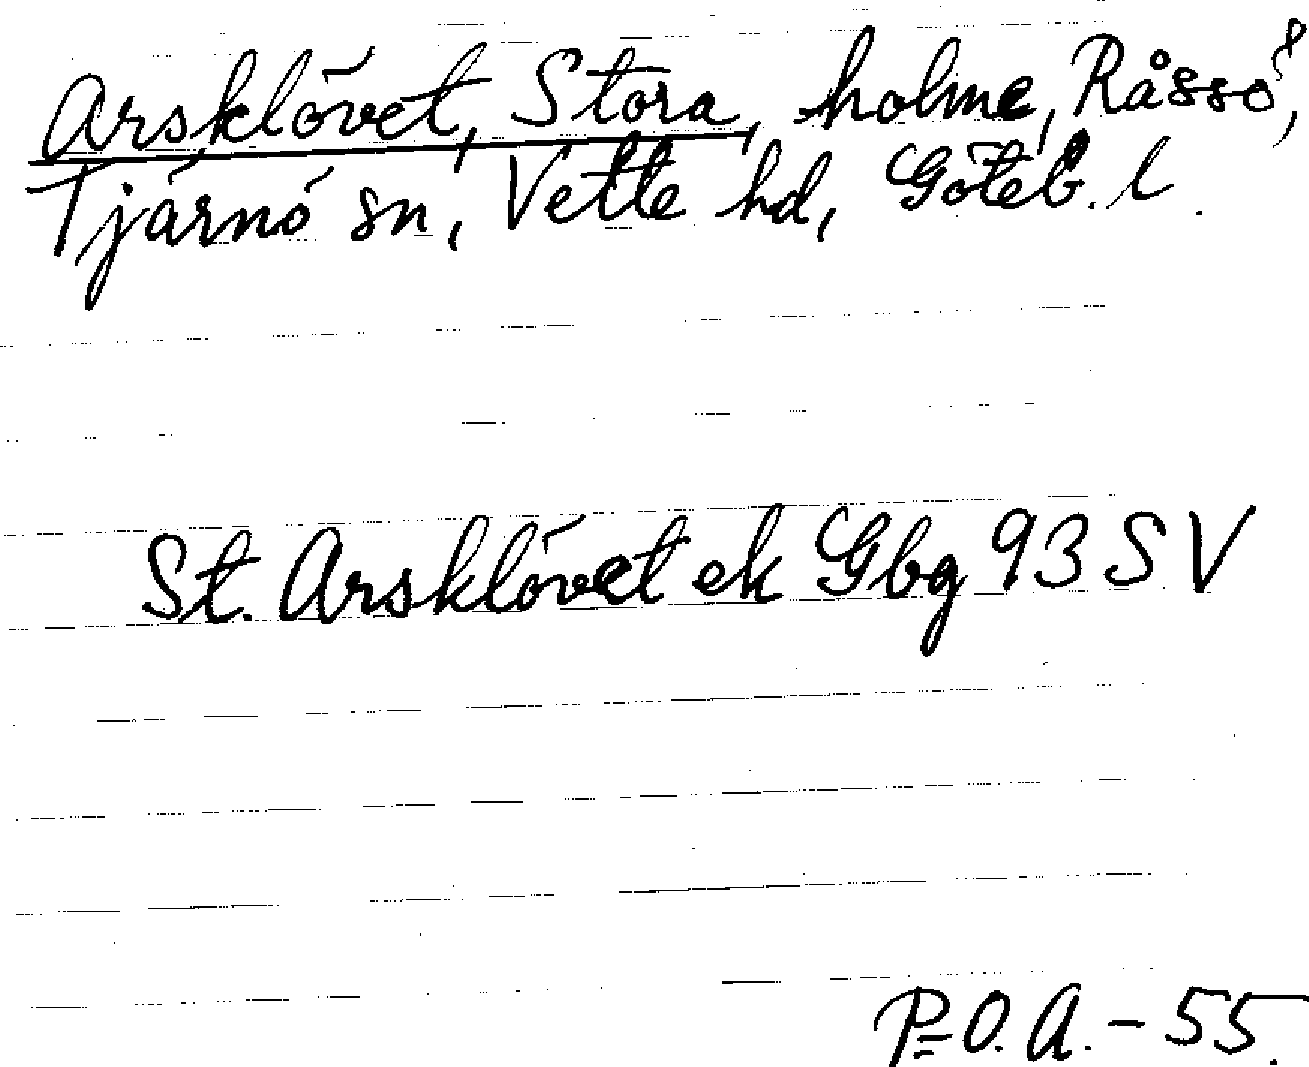 Arsklövet, Stora, holme, Råssö,
Tjärnö sn, Vette hd, Göteb. l.
St. Arsklövet ek Gbg 93 SV
P.O.A. - 55.